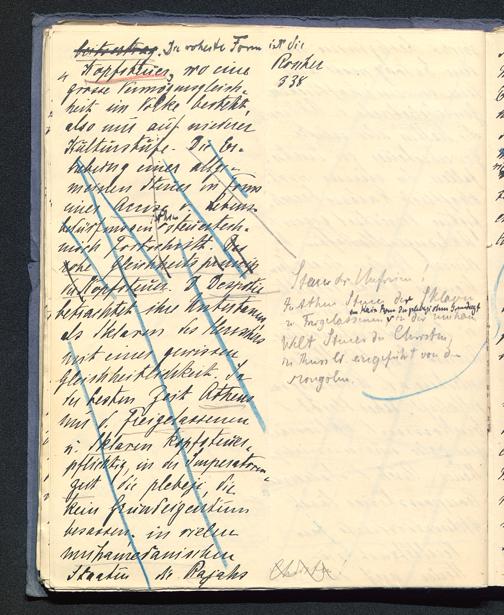 Die roheste Form ist die
Kopfsteuer, wo eine
grosse Vermögensgleich-
heit im Volke besteht,
also nur auf niederer
Kulturstufe. Die Er-
hebung einer allge-
meinen Steuer in Form
einer Accise o. Lebens-
ist schon
noch Fortschritt. Das
rohe Gleichheitsprincip
der Kopfsteuer. d. Despotie
betrachtet ihre Untertanen
als Sklaven des Herrschers
mit einer gewissen
Gleichheitlichkeit. in
der besten Zeit Athens
nur d. Freigelassenen
u. Sklaven kopfsteuer-
pflichtig, in der Imperatoren-
zeit die plebeje die
kein Grundeigentum
besassen. in vielen
muhamedanischen
Staaten die Rajahs
Roscher
338
Steuer der Unfreien!
In Athen Steuer der Sklaven
im Kais. Rom der plebeji ohne Grundbesitz
u. Freigelassenen in der
Welt Steuer der Christen,
in Russl. eingeführt von den
Mongolen.